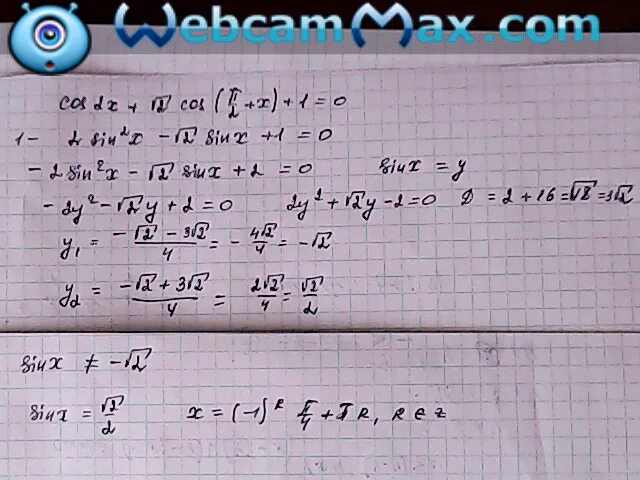 WebcamMax.com
cos 2x + √2 cos(π/2 + x) + 1 = 0
1 - 2 sin²x - √2 sinx + 1 = 0
- 2 sin²x - √2 sinx + 2 = 0 sinx = y
- 2y² - √2y + 2 = 0 2y² + √2y - 2 = 0 D = 2 + 16 = √18 = 3√2
y₁ = (-√2 - 3√2)/4 = - 4√2/4 = - √2
y₂ = (-√2 + 3√2)/4 = 2√2/4 = √2/2
sinx ≠ - √2
sinx = √2/2 x = (-1)ᵏ π/4 + πk, k ∈ z